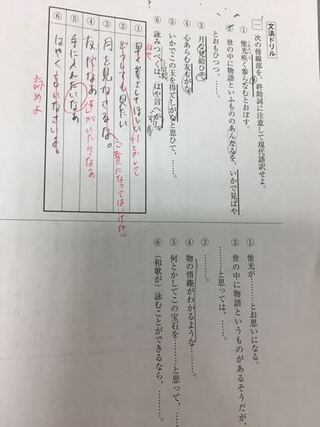 文法ドリル
一 次の傍線部を、終助詞に注意して現代語訳せよ。
① 惟光疾く参らなむとおぼす。
② 世の中に物語といふもののあんなるを、いかで見ばや
とおもひつつ、……
③ 月な見給ひそ。
④ 心あらむ友もがな。
⑤ いかでこの玉を得てしがなと思ひて、……
⑥ 詠みつべくは、はや言へかし。
①
②
③
④
⑤
⑥
早く参上してほしい
どうしても見たい
ご覧になってはいけない
月を見なさるな。
友だちがいたらなあ
手に入れたいなあ
はやく言いなさいよ。
詠めよ
① 惟光が……とお思いになる。
② 世の中に物語というものがあるそうだが、
……と思っては、……
③ ……。
④ 物の情趣がわかるような……。
⑤ 何とかしてこの宝石を……と思って、……
⑥ (和歌が)詠むことができるなら、……。